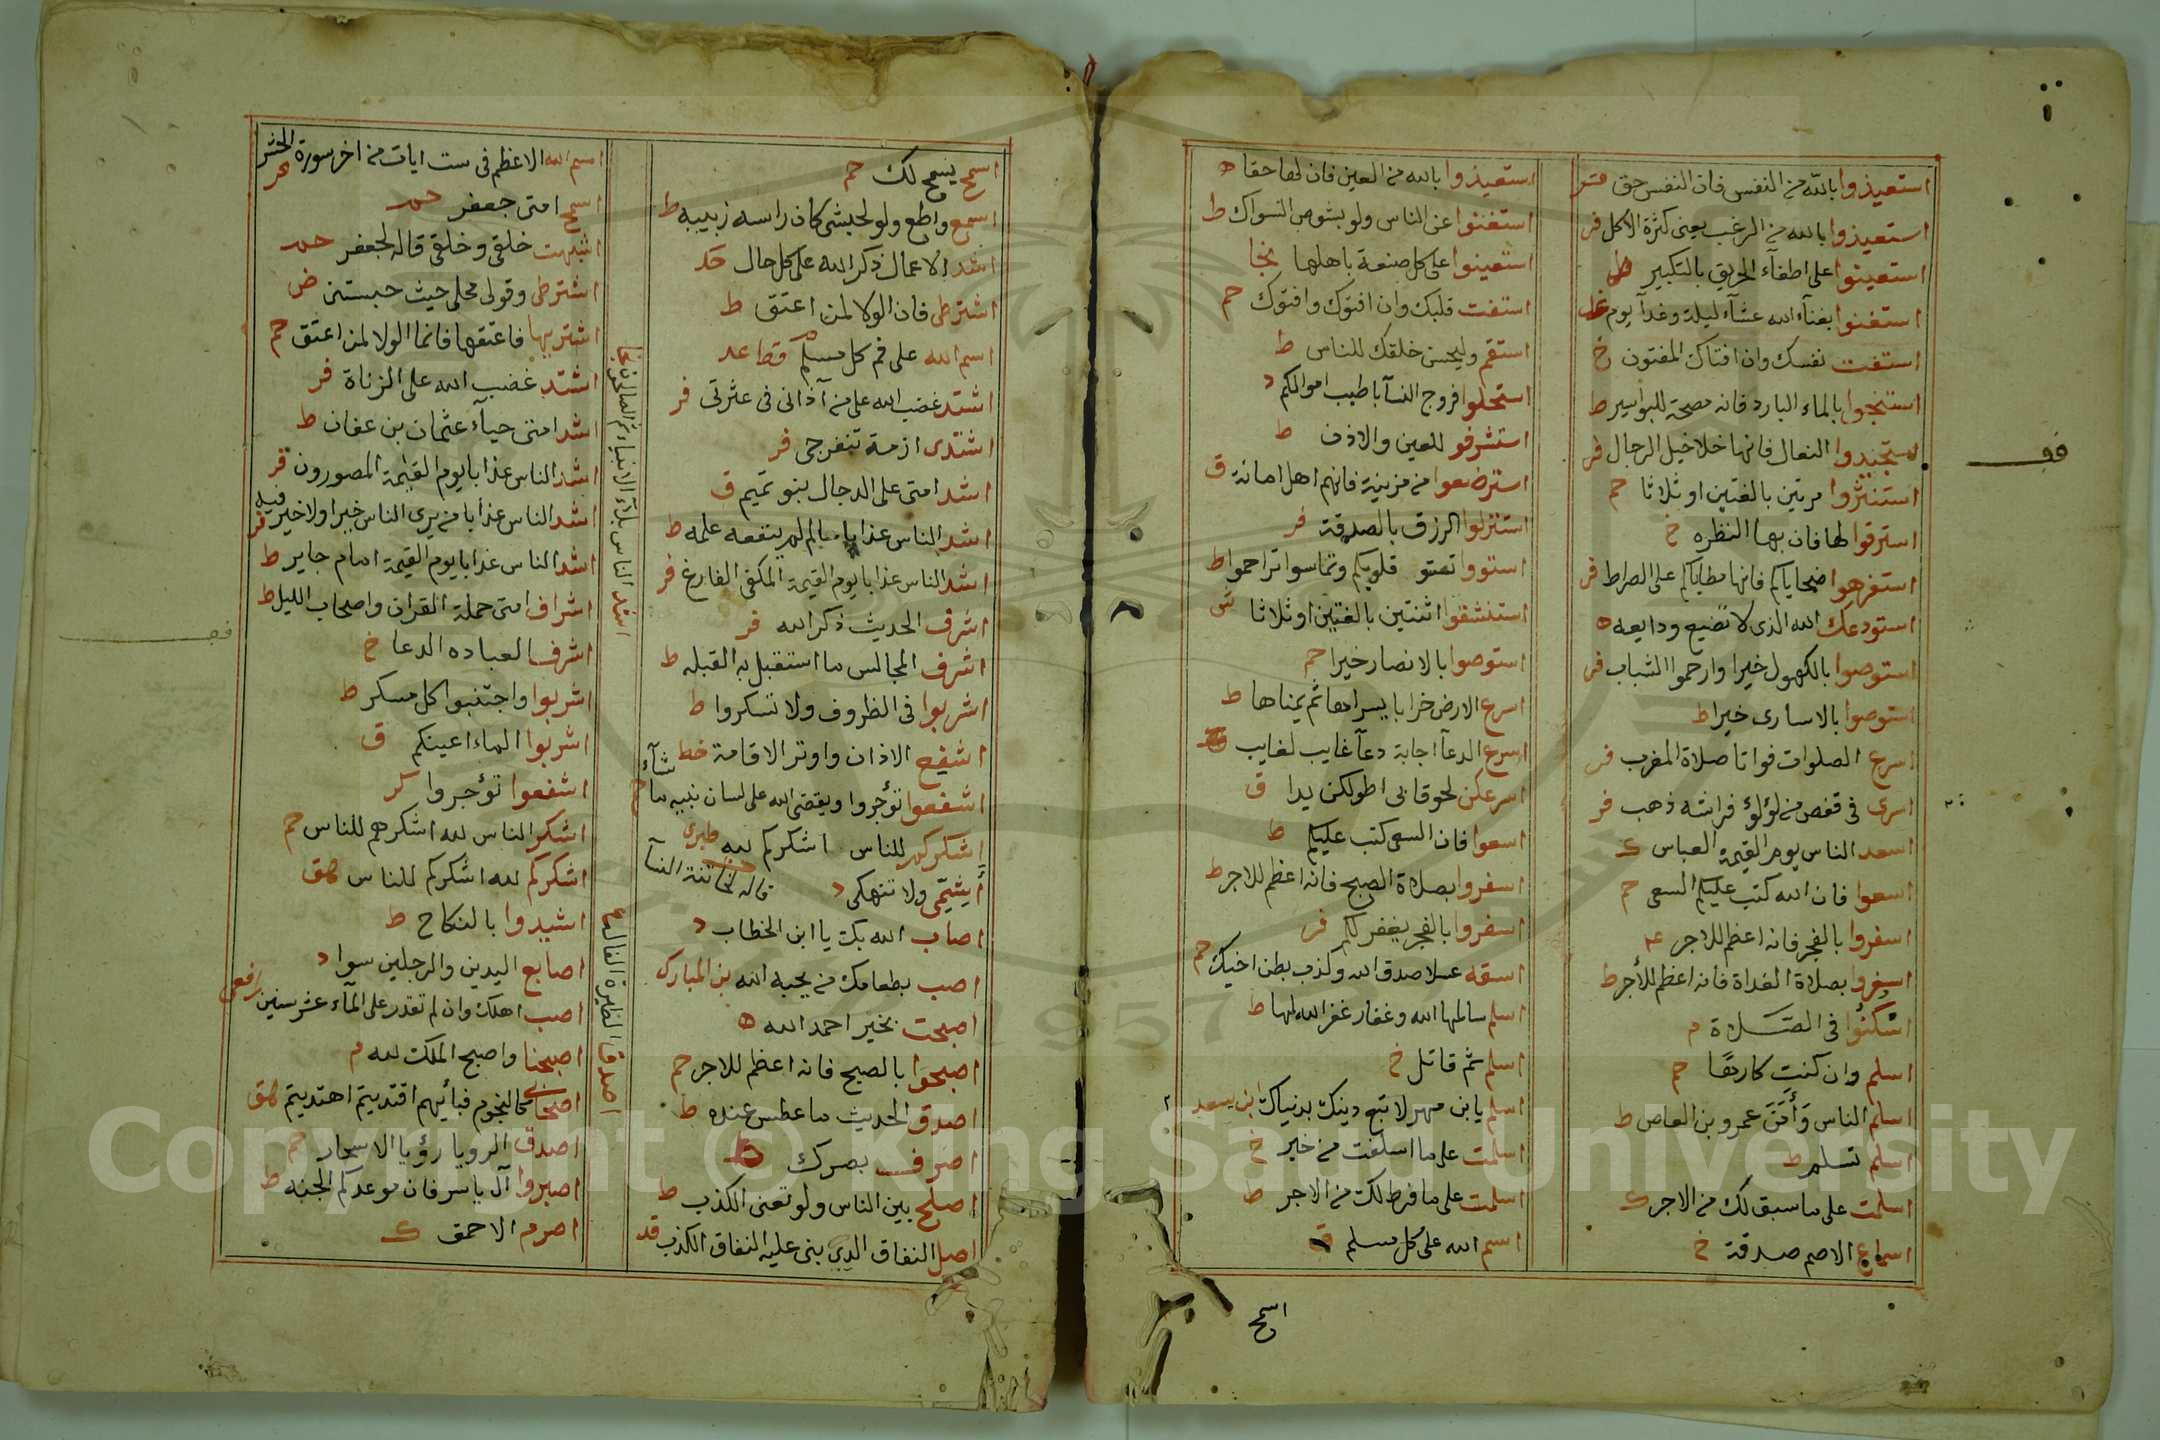 استعيذوا بالله من النفس فان النفس حق
استعيذوا بالله من الرغب يعنى كثرة الاكل فر
استعينوا على اطفآء الحريق بالتكبير ط
استغنوا بغنآء الله عشآء ليلة وغدآ يوم
استفت نفسك وان افتاك المفتون خ
استنجوا بالماء البارد فانه مصحة للبواسير ط
استجيدوا النعال فانها خلاخيل الرجال فر
استنثروا مرتين بالغتين او ثلاثا حم
استرقوا لها فان بها النظره خ
استفرهوا ضحاياكم فانها مطاياكم على الصراط فر
استودعك الله الذى لا تضيع ودايعه ه
استوصوا بالكهول خيرا وارحموا الشباب فر
استوصوا بالاسارى خيرا ط
اسرع الصلوات فواتا صلاة المغرب فر
اسرى فى قفص من لؤلؤ فراشه ذهب فر
اسعد الناس يوم القيمة العباس ك
اسعوا فان الله كتب عليكم السعى حم
اسفروا بالفجر فانه اعظم للاجر
اسفروا بصلاة الغداة فانه اعظم للأجر ط
اسكنوا فى الصلاة م
اسلم وان كنت كارها حم
اسلم الناس وأمن عمرو بن العاص ط
اسلم تسلم ط
اسلمت على ما سبق لك من الاجر ك
اسماع الاصم صدقة خ
استعيذوا بالله من العين فان لها حقا ه
استغنوا عن الناس ولو بشوص السواك ط
استعينوا على كل صنعة باهلها نجا
استفت قلبك وان افتوك وافتوك حم
استقم وليحسن خلقك للناس ط
استحلوا فروج النسآ باطيب اموالكم د
استشرفو للعين والاذن ط
استرضعوا من مزينة فانهم اهل امانة ق
استنزلوا الرزق بالصدقة فر
استووا تستو قلوبكم وتماسوا تراحموا ط
استنشقوا اثنتين بالغتين او ثلاثا ش
استوصوا بالانصار خيرا حم
اسرع الارض خرابا يسراها ثم يمناها ط
اسرع الدعآ اجابة دعآ غايب لغايب
اسرعكن لحوقا بى اطولكن يدا ق
اسعوا فان السعى كتب عليكم ط
اسفروا بصلاة الصبح فانه اعظم للاجر ط
اسفروا بالفجر يغفر لكم فر
اسقه عسلا صدق الله وكذب بطن اخيك حم
اسلم سالمها الله وغفار غفر الله لها ط
اسلم ثم قاتل خ
اسلم يا ابن مهر لا تبع دينك بدنياك ابن سعد
اسلمت على ما اسلفت من خير خ
اسلمت على ما فرط لك من الاجر ط
اسم الله على كل مسلم ق
اسمح
فف
اسمح يسمح لك حم
اسمع واطع ولو لحبشى كان راسه زبيبه ط
اشد الاعمال ذكر الله على كل حال
اشترطى فان الولا لمن اعتق ط
اسم الله على فم كل مسلم قط عد
اشتد غضب الله على من آذانى فى عترتى فر
اشتدى ازمة تنفرجى فر
اشد امتى على الدجال بنو تميم ق
اشد الناس عذابا عالم لم ينفعه علمه ط
اشد الناس عذابا يوم القيمة المكفى الفارغ فر
اشرف الحديث ذكر الله فر
اشرف المجالس ما استقبل به القبله ط
اشربوا فى الظروف ولا تسكروا ط
اشفع الاذان واوتر الاقامة خط
اشفعوا تؤجروا ويقضى الله على لسان نبيه ما شآء خ
اشكركم للناس اشكركم لله طبرى
أشيمى ولا تنهكى د قاله لخاتنة النسآ
اصاب الله بك يا ابن الخطاب د
اصب بطعامك من يحبه الله بن المبارك
اصبحت بخير احمد الله ه
اصبحوا بالصبح فانه اعظم للاجر حم
اصدق الحديث ما عطس عنده ط
اصرف بصرك
اصلح بين الناس ولو تعنى الكذب ط
اصل النفاق الذى بنى عليه النفاق الكذب قد
اشد الناس بلآء الانبياء ثم الصالحون نجا
اصدقا الطيرة الفال
اسم الله الاعظم فى ست ايات من اخر سورة الحشر فر
اسمح امتى جعفر
اشبهت خلقى وخلقى قاله لجعفر
اشترطى وقولى محلى حيث حبستنى
اشتريها فاعتقها فانما الولا لمن اعتق حم
اشتد غضب الله على الزناة فر
اشد امتى حيآء عثمان بن عفان ط
اشد الناس عذابا يوم القيمة المصورون
اشد الناس عذابا من يرى الناس خيرا ولا خير فيه فر
اشد الناس عذابا يوم القيمة امام جاير ط
اشراف امتى حملة القران واصحاب الليل ط
اشرف العباده الدعا خ
اشربوا واجتنبوا كل مسكر ط
اشربوا الماء اعينكم ق
اشفعوا تؤجروا كر
اشكر الناس لله اشكرهم للناس حم
اشكركم لله اشكركم للناس هق
اشيدوا بالنكاح ط
اصابع اليدين والرجلين سوا د
اصب اهلك وان لم تقدر على المآء عشر سنين
اصبحنا واصبح الملك لله م
اصحابى كالنجوم فبأيهم اقتديتم اهتديتم هق
اصدق الرويا رؤيا الاسحار حم
اصبروا آل ياسر فان موعدكم الجنة ط
اصرم الاحمق ك
Copyright © King Saud University
1957